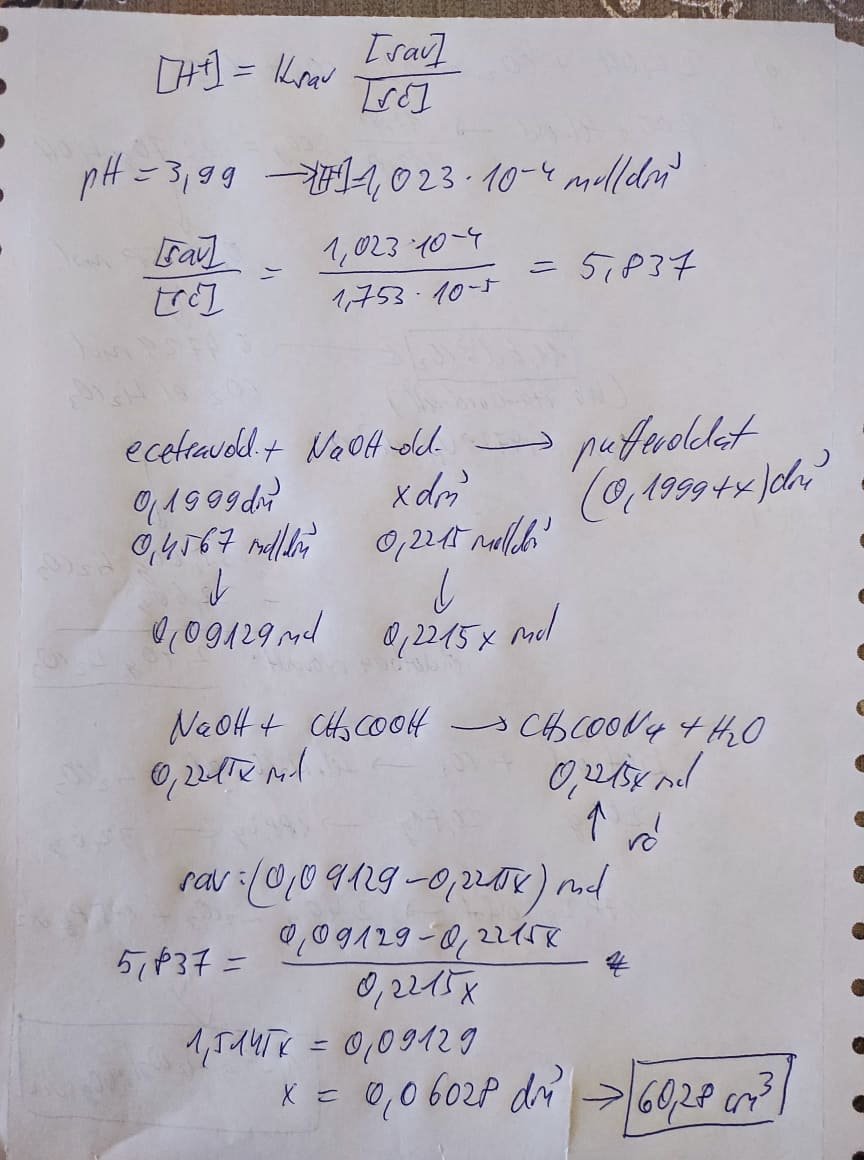 [H+] = Ksav [sav]/[só]
pH = 3,99 → [H+]=1,023·10-4 mol/dm3
[sav]/[só] = 1,023·10-4/1,753·10-5 = 5,837
ecetsavold.+ NaOH-old. → pufferoldat
0,1999dm3 xdm3 (0,1999+x)dm3
0,4567 mol/dm3 0,2215 mol/dm3
↓ ↓
0,09129 mol 0,2215x mol
NaOH + CH3COOH → CH3COONa + H2O
0,2215x mol 0,2215x mol
↑ só
sav:(0,09129-0,2215x) mol
5,837 = 0,09129-0,2215x/0,2215x
1,5145x = 0,09129
x = 0,06028 dm3 → 60,28 cm3